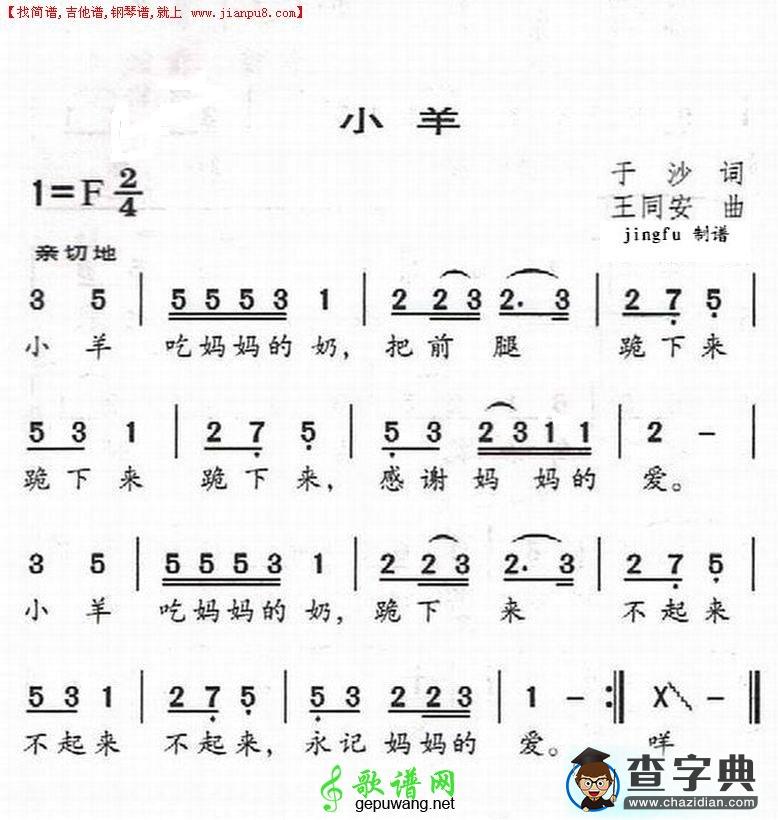 【找简谱,吉他谱,钢琴谱,就上 www.jianpu8.com】
小 羊
1=F 2/4
于 沙 词
王同安 曲
jingfu 制谱
亲切地
3 5 | 5 5 5 3 1 | 2 2 3 2. 3 | 2 7 5
小 羊 吃妈妈的奶,把前 腿 跪下来
5 3 1 | 2 7 5 | 5 3 2 3 1 1 | 2 -
跪下来 跪下来,感谢妈 妈的 爱。
3 5 | 5 5 5 3 1 | 2 2 3 2. 3 | 2 7 5
小 羊 吃妈妈的奶,跪下 来 不起来
5 3 1 | 2 7 5 | 5 3 2 2 3 | 1 - :‖ X - ‖
不起来 不起来,永记妈妈的 爱。 咩
歌谱网
gepuwang.net
查字典
www.chazidian.com